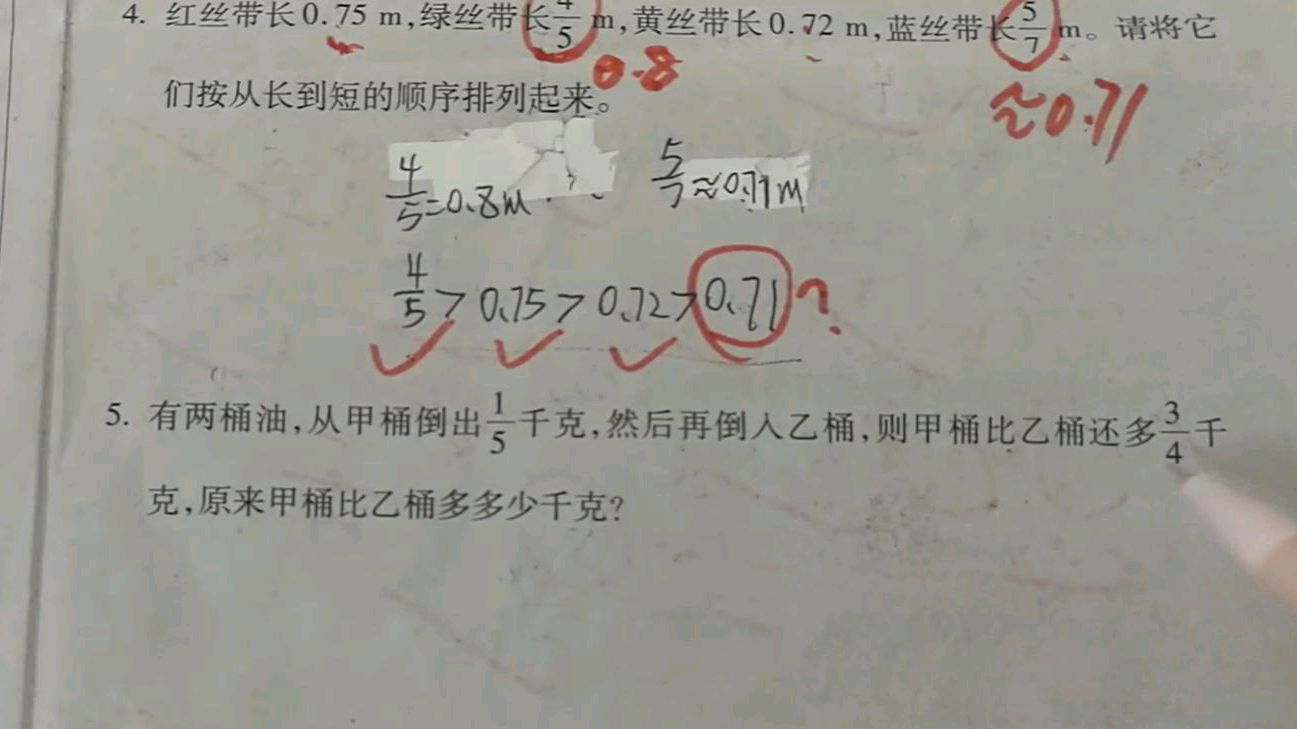 4. 红丝带长0.75 m,绿丝带长4/5 m,黄丝带长0.72 m,蓝丝带长5/7 m。请将它
0.8
们按从长到短的顺序排列起来。
≈0.71
4/5=0.8m 5/7≈0.71m
4/5>0.75>0.72>0.71 ?
5. 有两桶油,从甲桶倒出1/5千克,然后再倒入乙桶,则甲桶比乙桶还多3/4千
克,原来甲桶比乙桶多多少千克?